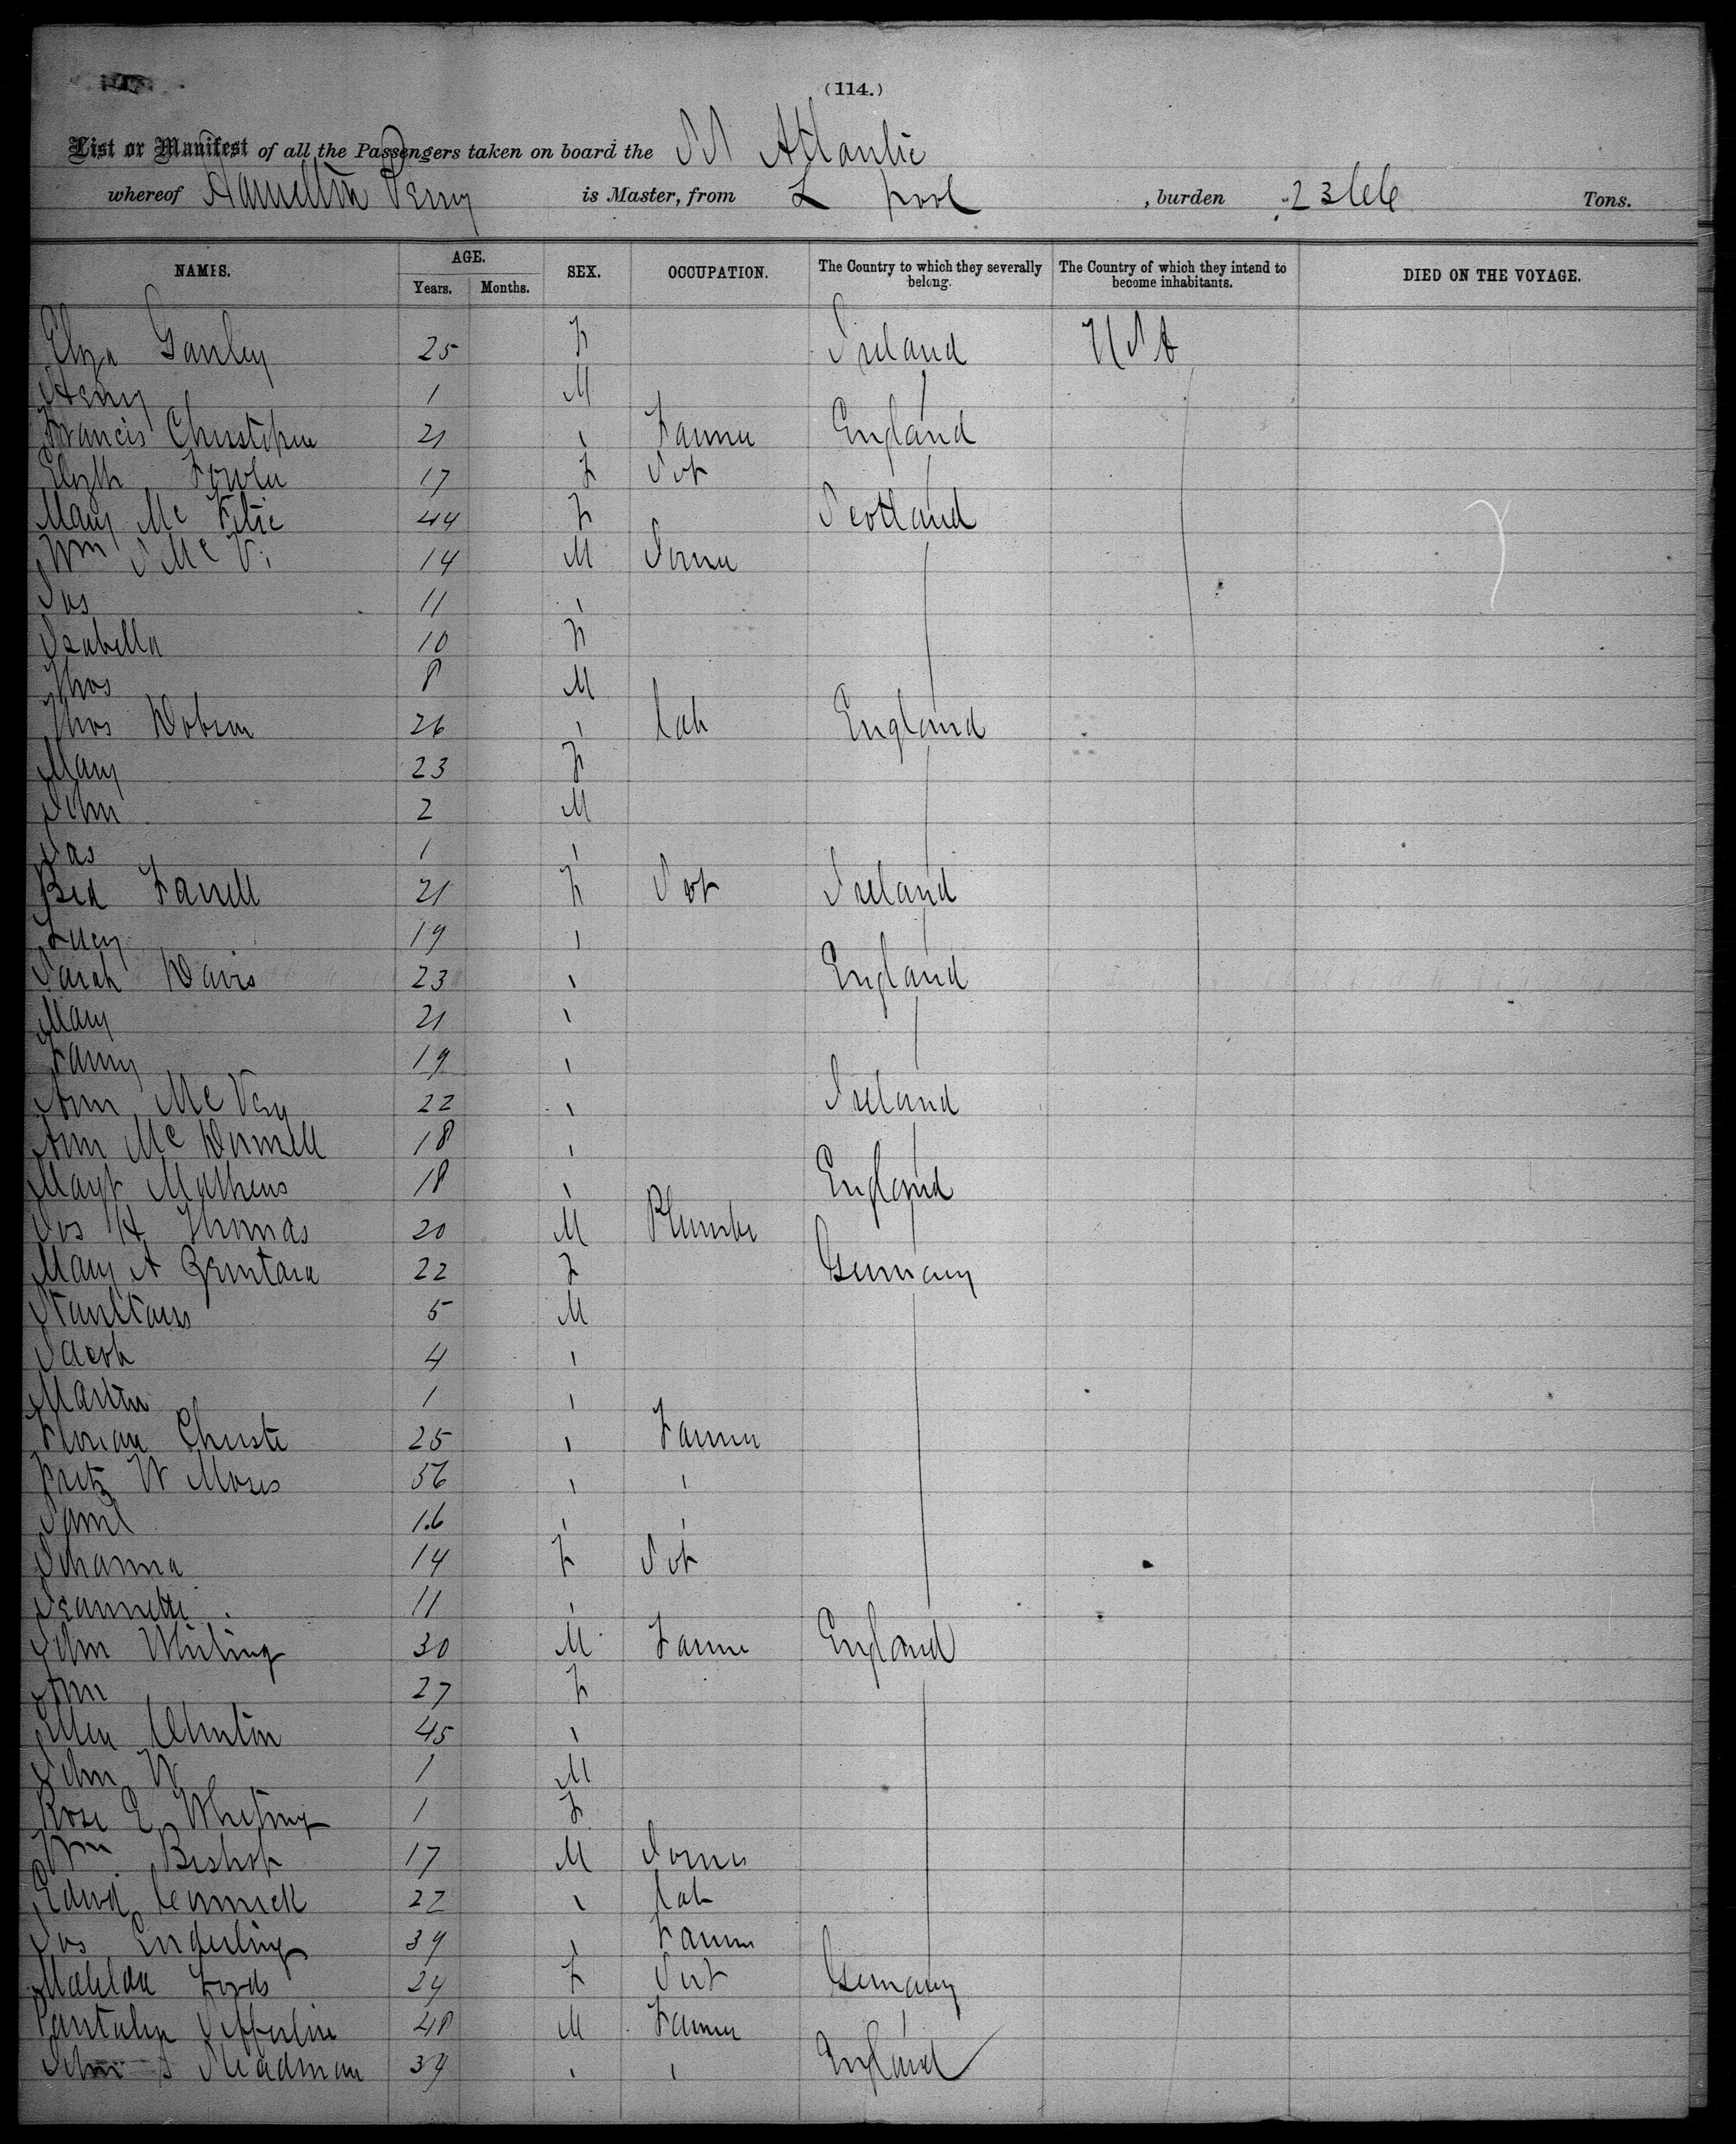 (114.)
List or Manifest of all the Passengers taken on board the SS Atlantic
whereof Hamilton Perry is Master, from L pool , burden 2366 Tons.
NAMES. AGE. Years. Months. SEX. OCCUPATION. The Country to which they severally belong. The Country of which they intend to become inhabitants. DIED ON THE VOYAGE.
Eliza Ganley 25 F Ireland USA
Henry 1 M
Francis 21 " Farmer England
Elizth Fowler 17 F Svt
Mary Mc 44 F Scotland
Wm S Mc 14 M
Jas 11 "
Isabella 10 F
Thos 8 M
Thos Dobson 26 " Lab England
Mary 23 F
John 2 M
Jas 1 "
Brd Farrell 21 F Svt Ireland
Lucy 19 "
Sarah Davis 23 " England
Mary 21 "
Fanny 19 "
Ann Mc Vey 22 " Ireland
Ann Mc Donnell 18 "
Margt Mathews 18 " England
Jos H Thomas 20 M Plumber
Mary A 22 F Germany
5 M
Jacob 4 "
Martin 1 "
Florian Christe 25 " Farmer
Fritz W Moses 56 " "
Saml 16 " "
Johanna 14 F Svt
Jeannette 11 "
John Whiting 30 M Farmer England
Ann 27 F
Ellen 45 "
John W 1 M
Rose E Whiting 1 F
Wm Bishop 17 M
Edwd 22 " Lab
Jos Enderling 39 " Farmer
Matilda Fords 24 F Svt Germany
48 M Farmer
John S Steadman 39 " " England